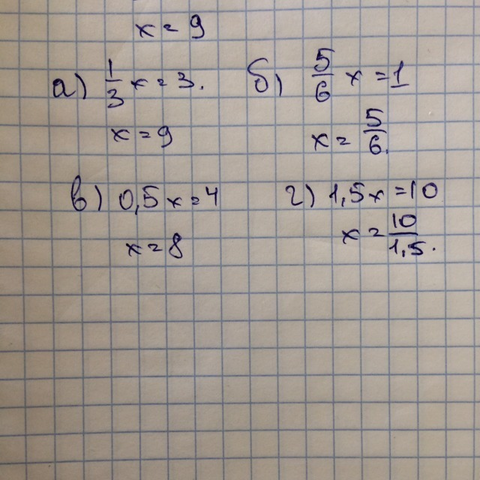 x = 9
а) 1/3 x = 3. б) 5/6 x = 1
x = 9 x = 5/6.
в) 0,5x = 4 г) 1,5x = 10
x = 8 x = 10/1,5.